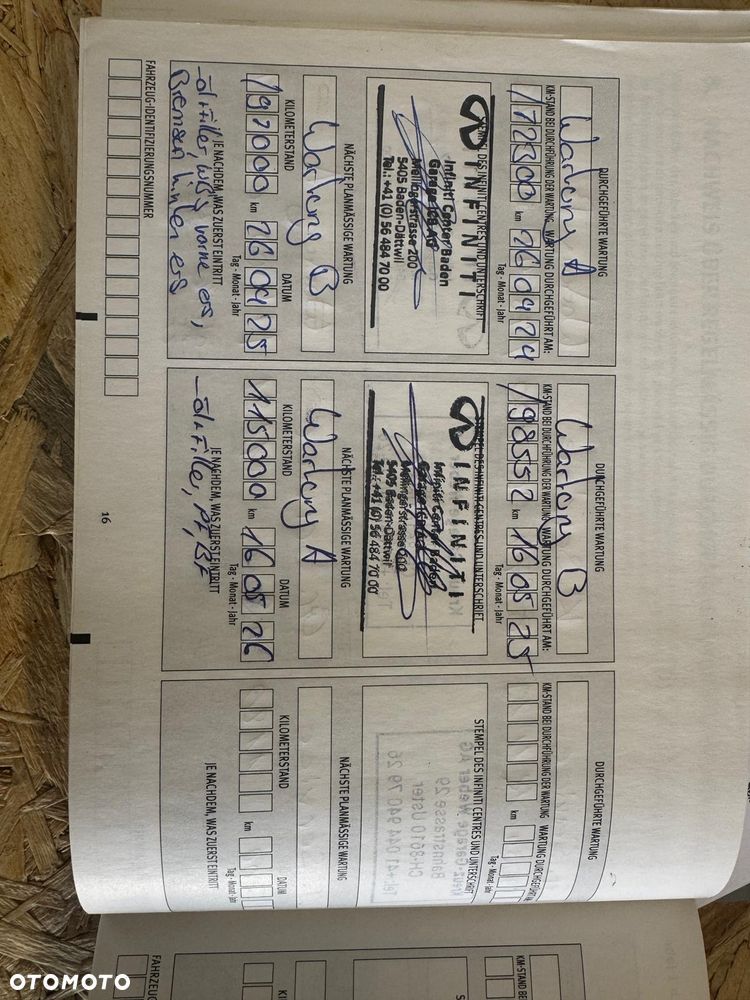 DURCHGEFÜHRTE WARTUNG
Wartung A
KM-STAND BEI DURCHFÜHRUNG DER WARTUNG WARTUNG DURCHGEFÜHRT AM:
172300 km 26 04 24
Tag - Monat - Jahr
STEMPEL DES INFINITI CENTRES UND UNTERSCHRIFT
INFINITI
Infiniti Center Baden
Garage ICB AG
Mellingerstrasse 200
5405 Baden-Dättwil
Tel.: +41 (0) 56 484 70 00
NÄCHSTE PLANMÄSSIGE WARTUNG
Wartung B
KILOMETERSTAND DATUM
197000 km 26 04 25
Tag - Monat - Jahr
JE NACHDEM, WAS ZUERST EINTRITT
vorne ers,
Bremsen hinten ers
FAHRZEUG-IDENTIFIZIERUNGSNUMMER
DURCHGEFÜHRTE WARTUNG
Wartung B
KM-STAND BEI DURCHFÜHRUNG DER WARTUNG WARTUNG DURCHGEFÜHRT AM:
198552 km 16 05 25
Tag - Monat - Jahr
STEMPEL DES INFINITI CENTRES UND UNTERSCHRIFT
INFINITI
Infiniti Center Baden
Mellingerstrasse 200
5405 Baden-Dättwil
Tel.: +41 (0) 56 484 70 00
NÄCHSTE PLANMÄSSIGE WARTUNG
Wartung A
KILOMETERSTAND DATUM
115000 km 16 05 26
Tag - Monat - Jahr
JE NACHDEM, WAS ZUERST EINTRITT
PF, BF
16
DURCHGEFÜHRTE WARTUNG
KM-STAND BEI DURCHFÜHRUNG DER WARTUNG WARTUNG DURCHGEFÜHRT A
km
Tag - Monat - Jahr
STEMPEL DES INFINITI CENTRES UND UNTERSCHRIFT
NÄCHSTE PLANMÄSSIGE WARTUNG
KILOMETERSTAND DATUM
km
Tag - Monat - Jahr
JE NACHDEM, WAS ZUERST EINTRITT
KM-STAND BEI
S
KI
FAHRZEUG
OTOMOTO